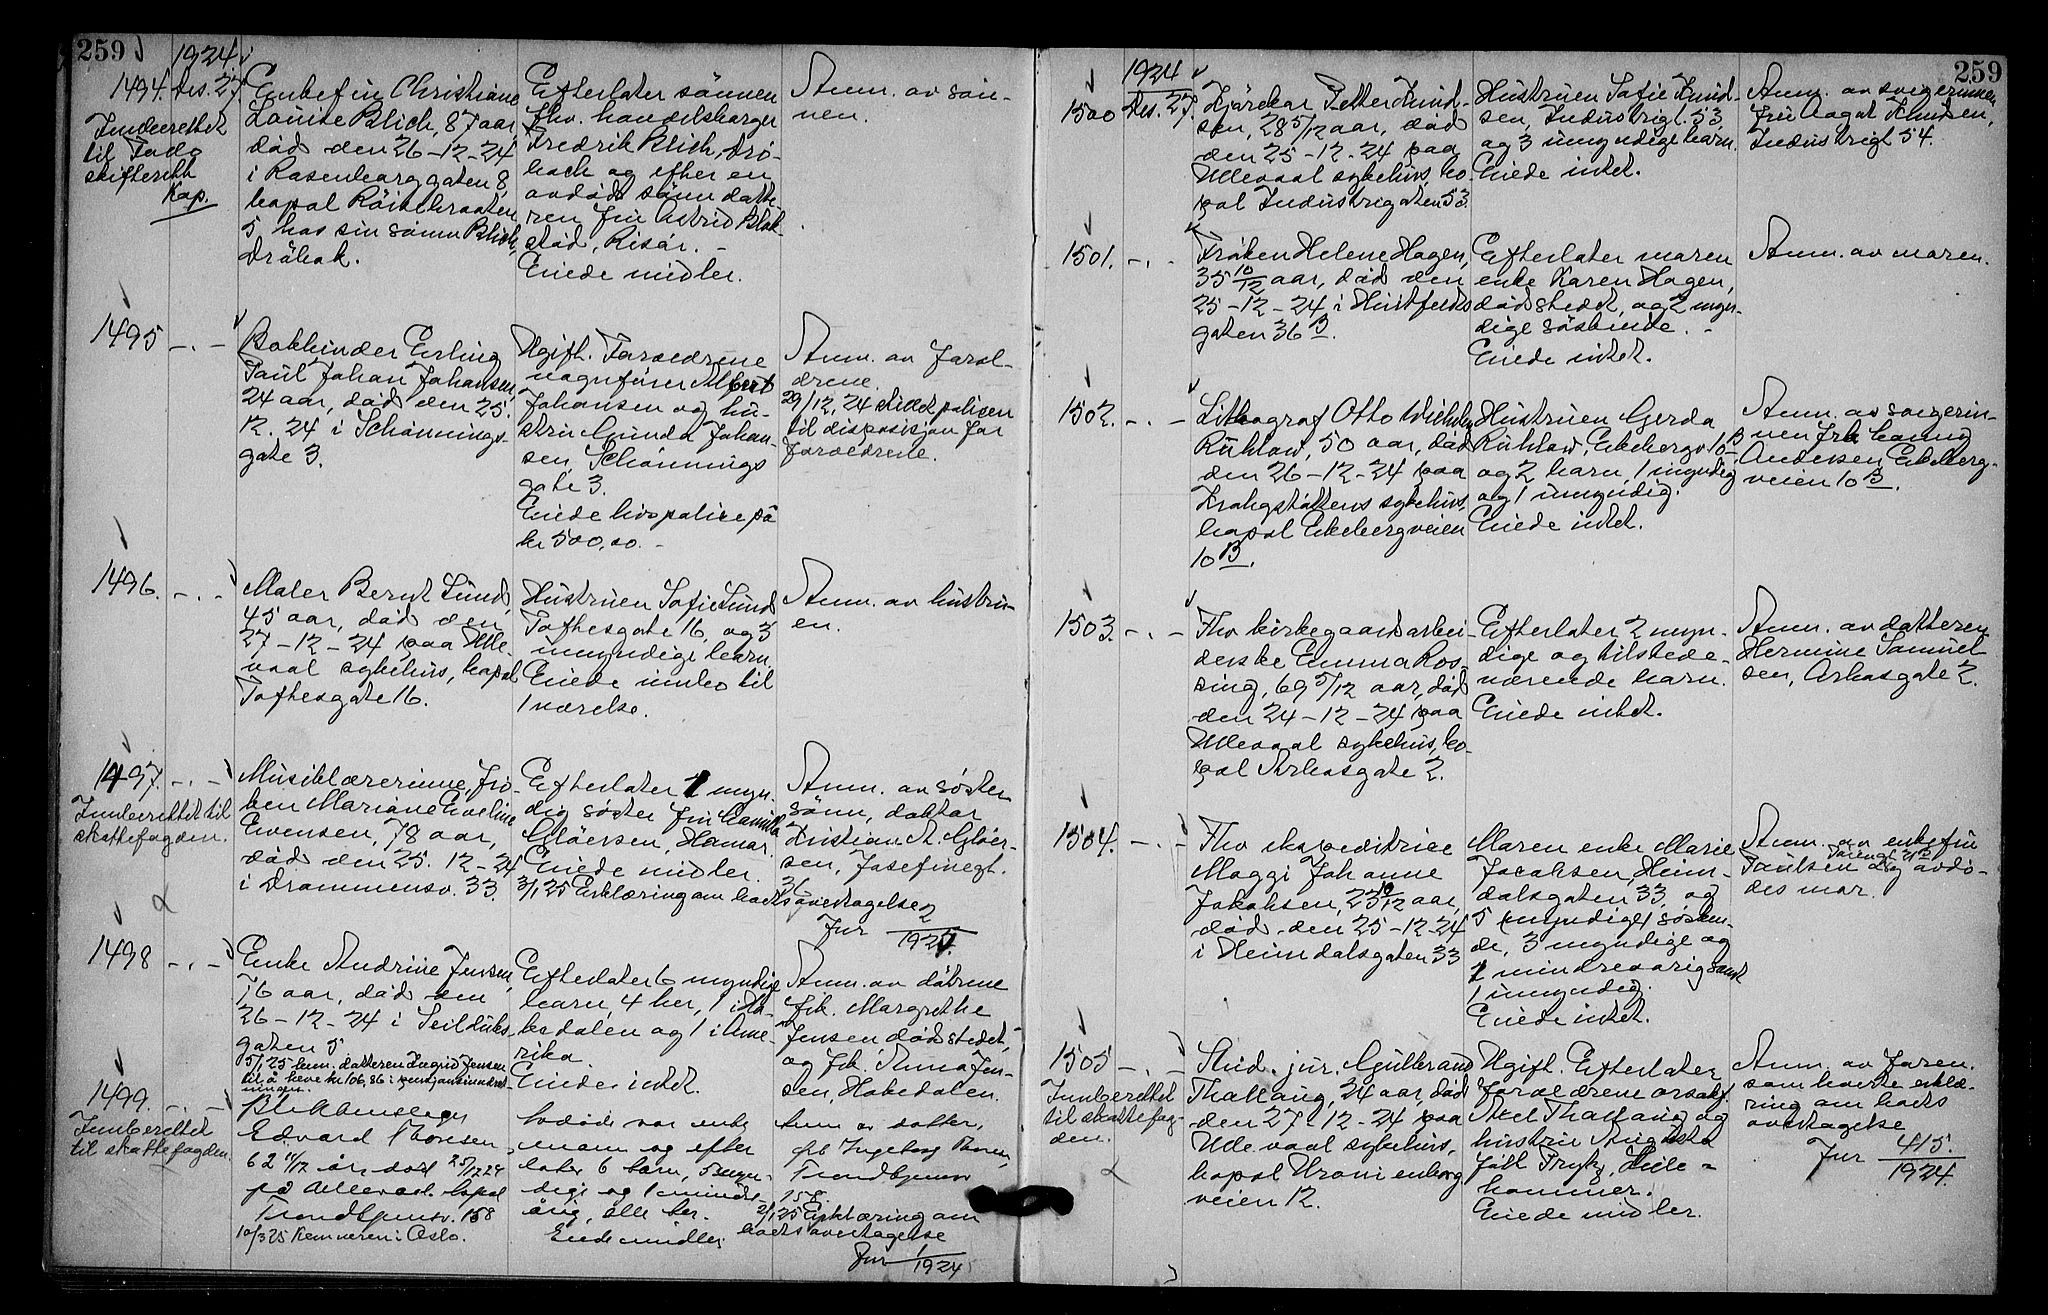 259
1924
1494. Des. 27.
Innberettet
til Follo
skifterett
Kap.
Enkefru Christiane
Louise Blich, 87 aar,
død den 26-12-24
i Rosenborggaten 8
bopæl
5 hos sin sønn Blich,
Drøbak.
Efterlater sønnen
fhv. handelsborger
Fredrik Blich, Drø-
bak og efter en
avdød sønn datte-
ren fru Astrid Blak-
stad, Risør. -
Eiede midler.
Anm. av søn-
nen.
1495 -.-
Bokbinder Erling
Paul Johan Johansen,
24 aar, død den 25.
12. 24 i Schønnings-
gate 3.
Ugift. Foreldrene
vognfører Albert
Johansen og hu-
stru Gunda Johan-
sen, Schønnings
gate 3.
Eiede livspolise på
kr 500,00. -
Anm. av forel-
drene.
29/12.24 stillet polisen
til disposisjon for
foreldrene.
1496. -.-
Maler Bernt Lund,
45 aar, død den
27-12-24 paa Ulle-
vaal sykehus, bopæl
Toftesgate 16.
Hustruen Sofie Lund
Toftesgate 16, og 3
umyndige barn.
Eiede innbo til
1 værelse.
Anm. av hustru-
en.
1497. -.-
Innberettet til
skattefogden.
Musiklærerinne, frø-
ken Mariane Eveline
Evensen, 78 aar,
død den 25. 12-24
i Drammensv. 33.
Efterlater 1 myn-
dig søster fru Camilla
Gløersen, Hamar.
Eiede midler.
3/1 25 Erklæring om boets overtagelse
Anm. av søster
sønn, doktor
Kristian A. Gløer-
sen, Josefinegt.
36
Jnr 2/1925.
1498 -.-
Enke Andrine Jensen,
76 aar, død den
26-12-24 i Seilduks-
gaten 5
5/1 25 bem. datteren Ingrid Jensen
til å heve kr 106,86 i pensjonsinnretningen.
Efterlater 6 myndige
barn, 4 her, 1 i Ho-
bedalen og 1 i Ame-
rika
Eiede intet.
Anm. av døtrene
frk. Margrethe
Jensen dødsstedet,
og frk. Anna Jen-
sen, Hobedalen.
1499. -.-
Innberettet
til skattefogden.
Blikkenslager
Edvard Thoresen
62 11/12 år, død 25/12 24
på Ullevaal. bopæl
Trondhjemsv. 158
10/3 25 Kemneren i Oslo.
Avdøde var enke
mann og efter
later 6 barn, 5 myn-
dige og 1 mindre-
årig, alle her.
Eiede midler
Anm av datter,
frk Ingeborg Thoresen,
Trondhjemsv
158.
2/1 25 Erklæring om
boets overtagelse
Jnr 1/1924
259
1924
1500 Des. 27.
Kjørekar Petter Knud-
sen, 28 5/12 aar, død
den 25-12-24 paa
Ullevaal sykehus, bo-
pæl Industrigaten 53.
Hustruen Sofie Knud-
sen, Industrigt. 53
og 3 umyndige barn.
Eiede intet.
Anm. av svigerinnen
fru Aagot Knudsen,
Industrigt 54.
1501. -.-
Frøken Helene Hagen,
35 10/12 aar, død den
25-12-24 i Huitfeldts
gaten 36 B.
Efterlater moren
enke Karen Hagen,
dødsstedet, og 2 myn-
dige søskende. -
Eiede intet.
Anm. av moren.
1502. -.-
Litograf Otto Wilhelm
Ruhlow, 50 aar, død
den 26-12-24 paa
Krohgstøttens sykehus,
bopæl Ekebergveien
10 B.
Hustruen Gerda
Ruhlow, Ekebergv 10 B
og 2 barn, 1 myndig
og 1 umyndig.
Eiede intet.
Anm. av svigerin-
nen frk Fanny
Andersen, Ekeberg-
veien 10 B.
1503. -.-
Fhv kirkegaardsarbei-
derske Emma Ros-
sing, 69 5/12 aar, død
den 24-12-24 paa
Ullevaal sykehus, bo-
pæl Arkosgate 2.
Efterlater 2 myn-
dige og tilstede-
værende barn.
Eiede intet.
Anm. av datteren
Hermine Samuel-
sen, Arkosgate 2.
1504. -.-
Fhv ekspeditrice
Maggi Johanne
Jakobsen, 23 10/12 aar,
død den 25-12-24
i Heimdalsgaten 33
Moren enke Marie
Jacobsen, Heim-
dalsgaten 33, og
5 (myndige) søsken-
de, 3 myndige og
1 mindreaarig samt
1 umyndig.
Eiede intet.
Anm. av enkefru
Paulsen og avdø-
des mor.
1505 -.-
Innberettet
til skattefog-
den.
Stud. jur. Gulbrand
Thallaug, 24 aar, død
den 27-12-24 paa
Ullevaal sykehus,
bopæl Uranienborg
veien 12.
Ugift. Efterlater
foreldrene o.r.sakf.
Axel Thallaug og
hustru Augusta
født Fryk, Lille-
hammer.
Eiede midler.
Anm. av faren
som hevte erklæ-
ring om boets
overtagelse
Jnr 415./1924